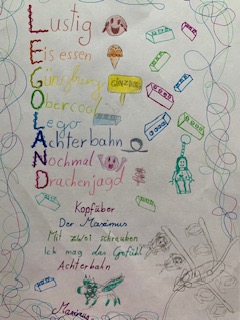 Lustig
Eis essen
Günzburg
GÜNZBURG
Obercool
Lego
Achterbahn
Nochmal
Drachenjagd
Kopfüber
Der Maximus
Mit zwei schrauben
Ich mag das Gefühl
Achterbahn
Maximus